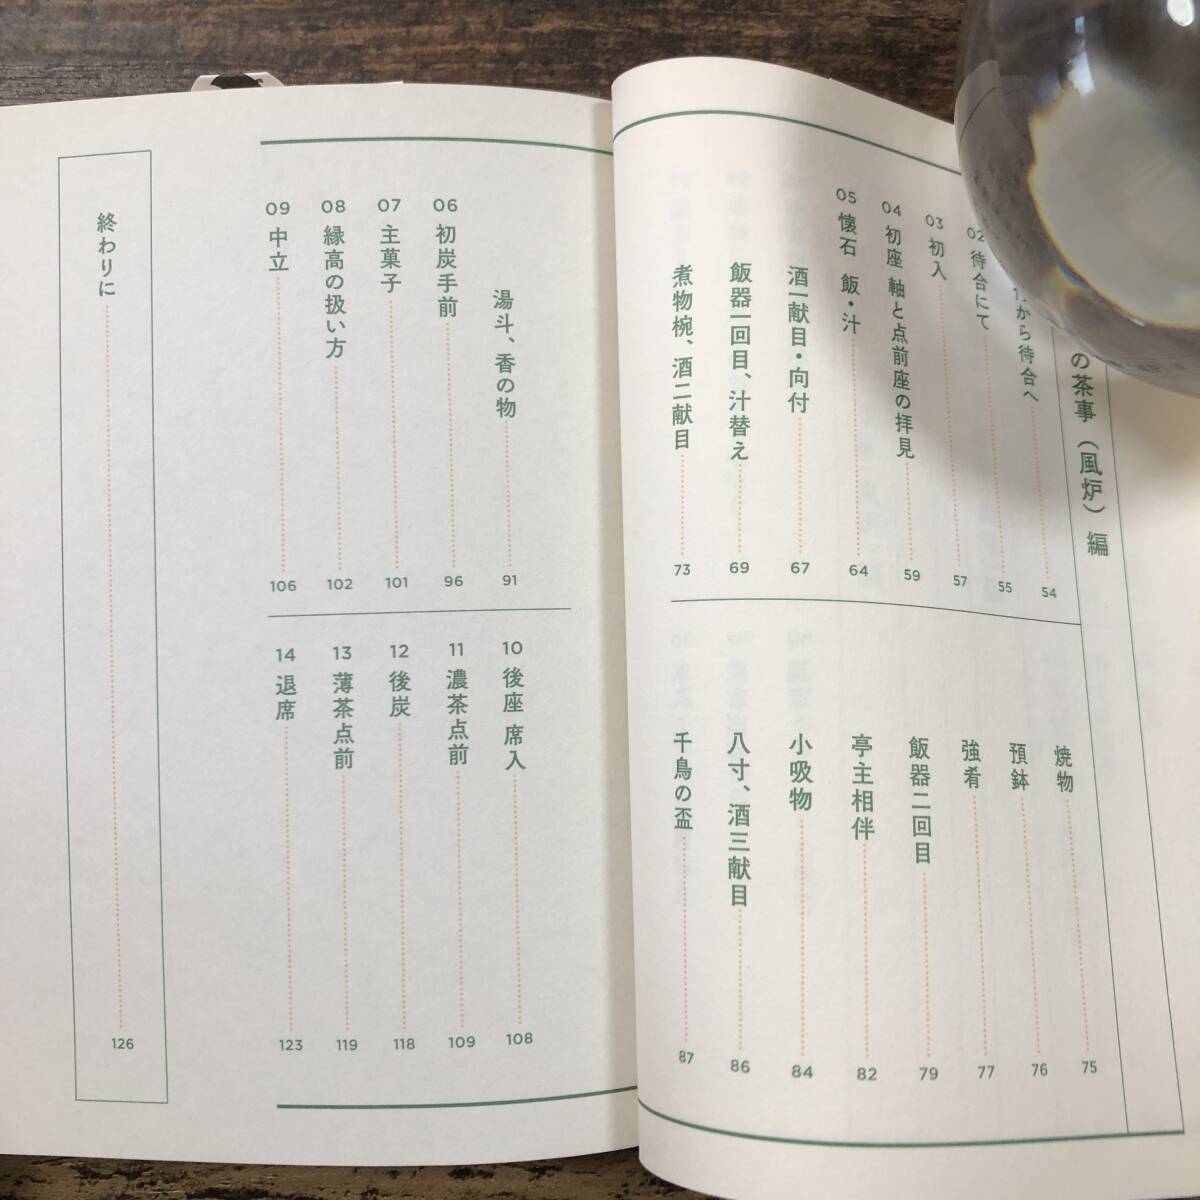 の茶事（風炉）編
から待合へ 54
02 待合にて 55
03 初入 57
04 初座 軸と点前座の拝見 59
05 懐石 飯・汁 64
酒一献目・向付 67
飯器一回目、汁替え 69
煮物椀、酒二献目 73
焼物 75
預鉢 76
強肴 77
飯器二回目 79
亭主相伴 82
小吸物 84
八寸、酒三献目 86
千鳥の盃 87
湯斗、香の物 91
06 初炭手前 96
07 主菓子 101
08 縁高の扱い方 102
09 中立 106
10 後座 席入 108
11 濃茶点前 109
12 後炭 118
13 薄茶点前 119
14 退席 123
終わりに 126